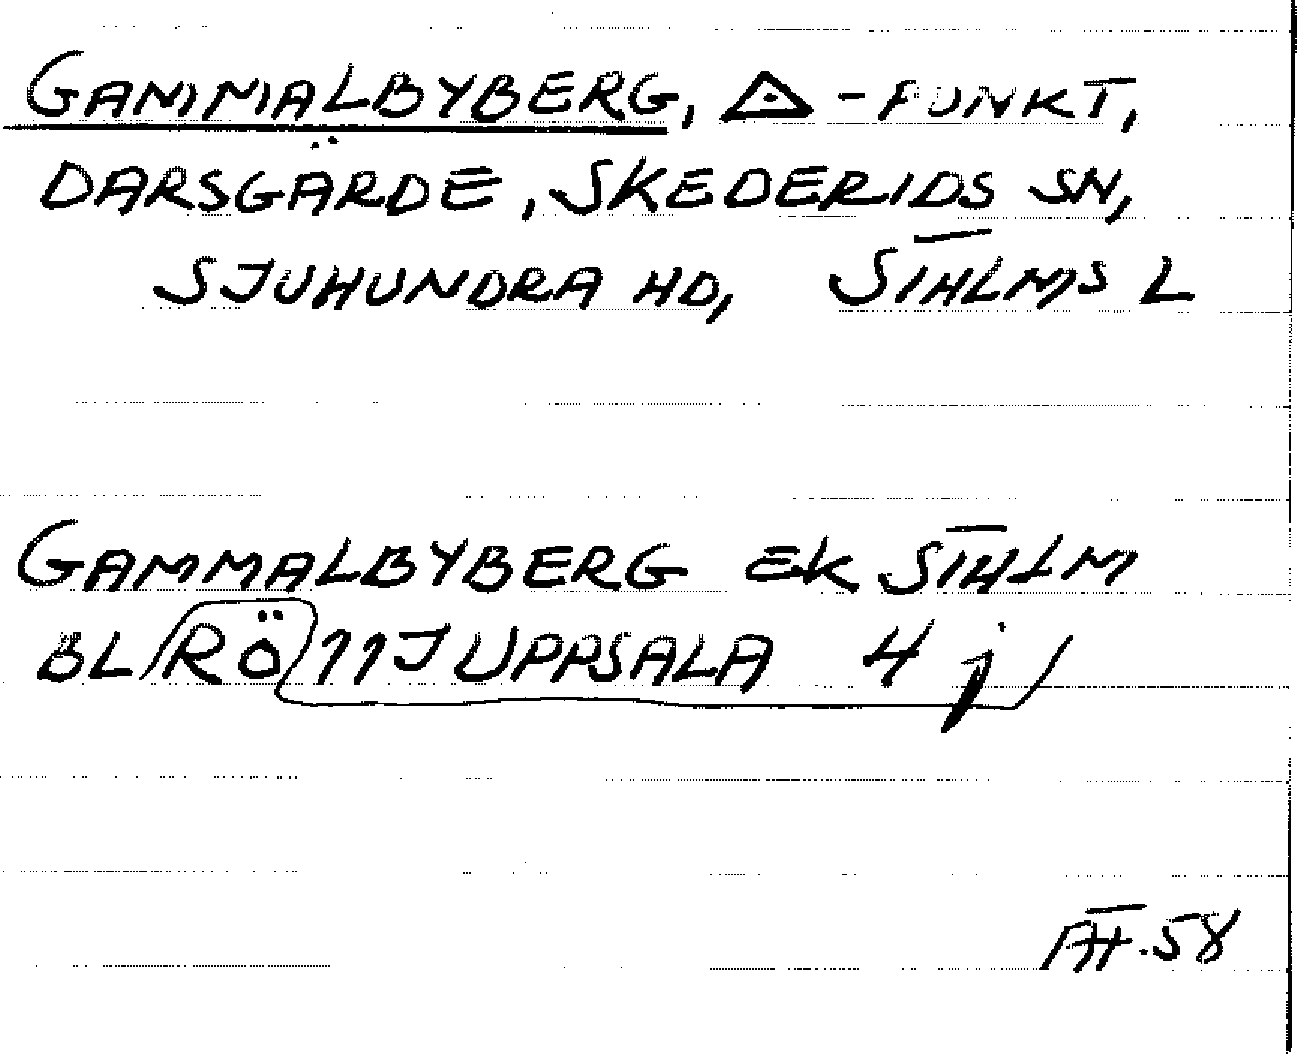 GAMMALBYBERG, △-PUNKT,
DARSGÄRDE, SKEDERIDS SN,
SJUHUNDRA HD, STHLMS L
GAMMALBYBERG EK STHLM
BL RÖ 11J UPPSALA 4 j